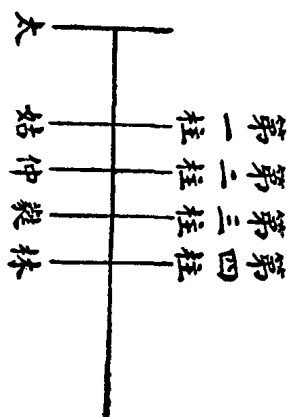 太
第一柱 姑
第二柱 仲
第三柱 蕤
第四柱 林